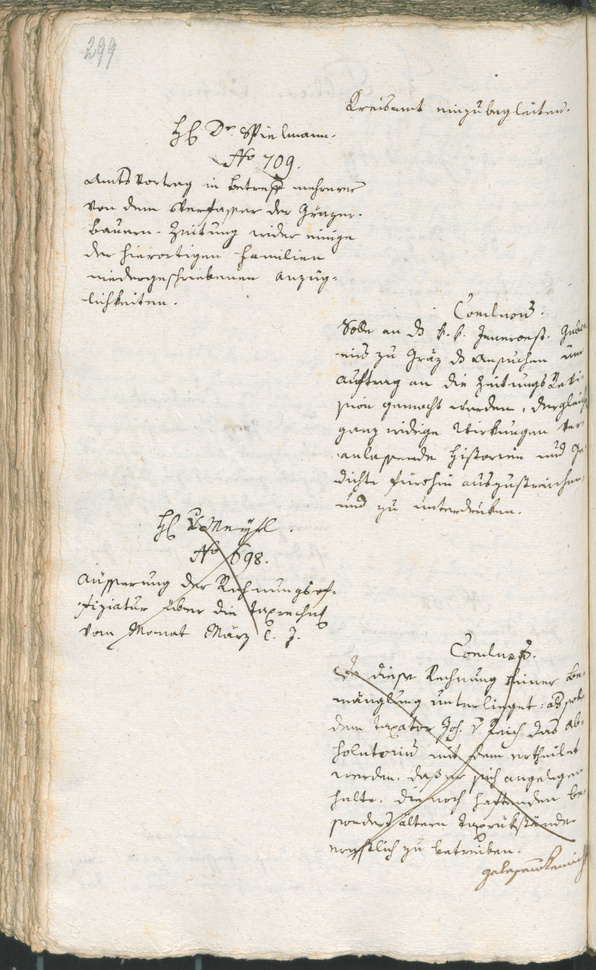 299
Kreisamt einzubegleiten.
H. Dr. Spielmann.
No 709.
Amts Vortrag in betreff mehrerer
von dem Verfasser der Gräzer-
bauern-Zeitung wider einige
der hierortigen Familien
niedergeschriebenen Anzüg-
lichkeiten.
Conclusum.
Solle an das k. k. Inneroest. Guber
nio zu Gräz das Ansuchen um
Auftrag an die Zeitungs Revi-
sion gemacht werden, dergleich
ganz widrige Wirkungen ver-
anlassende Historien und Ge-
dichte fürohin auszustreichen
und zu unterdrüken.
H. v.
No 698.
Äusserung der Rechnungsof-
fiziatur über die Taxrechnung
vom Monat März l. J.
Conclusum.
Da diese Rechnung keiner Be-
mänglung unterlieget: als
dem Taxator Joh. v. das Ab-
solutorium mit dem ertheilet
werden, daß er sich angelegen
halte, die noch haftenden be-
sonders ältern Taxrükstände
ernstlich zu betreiben.